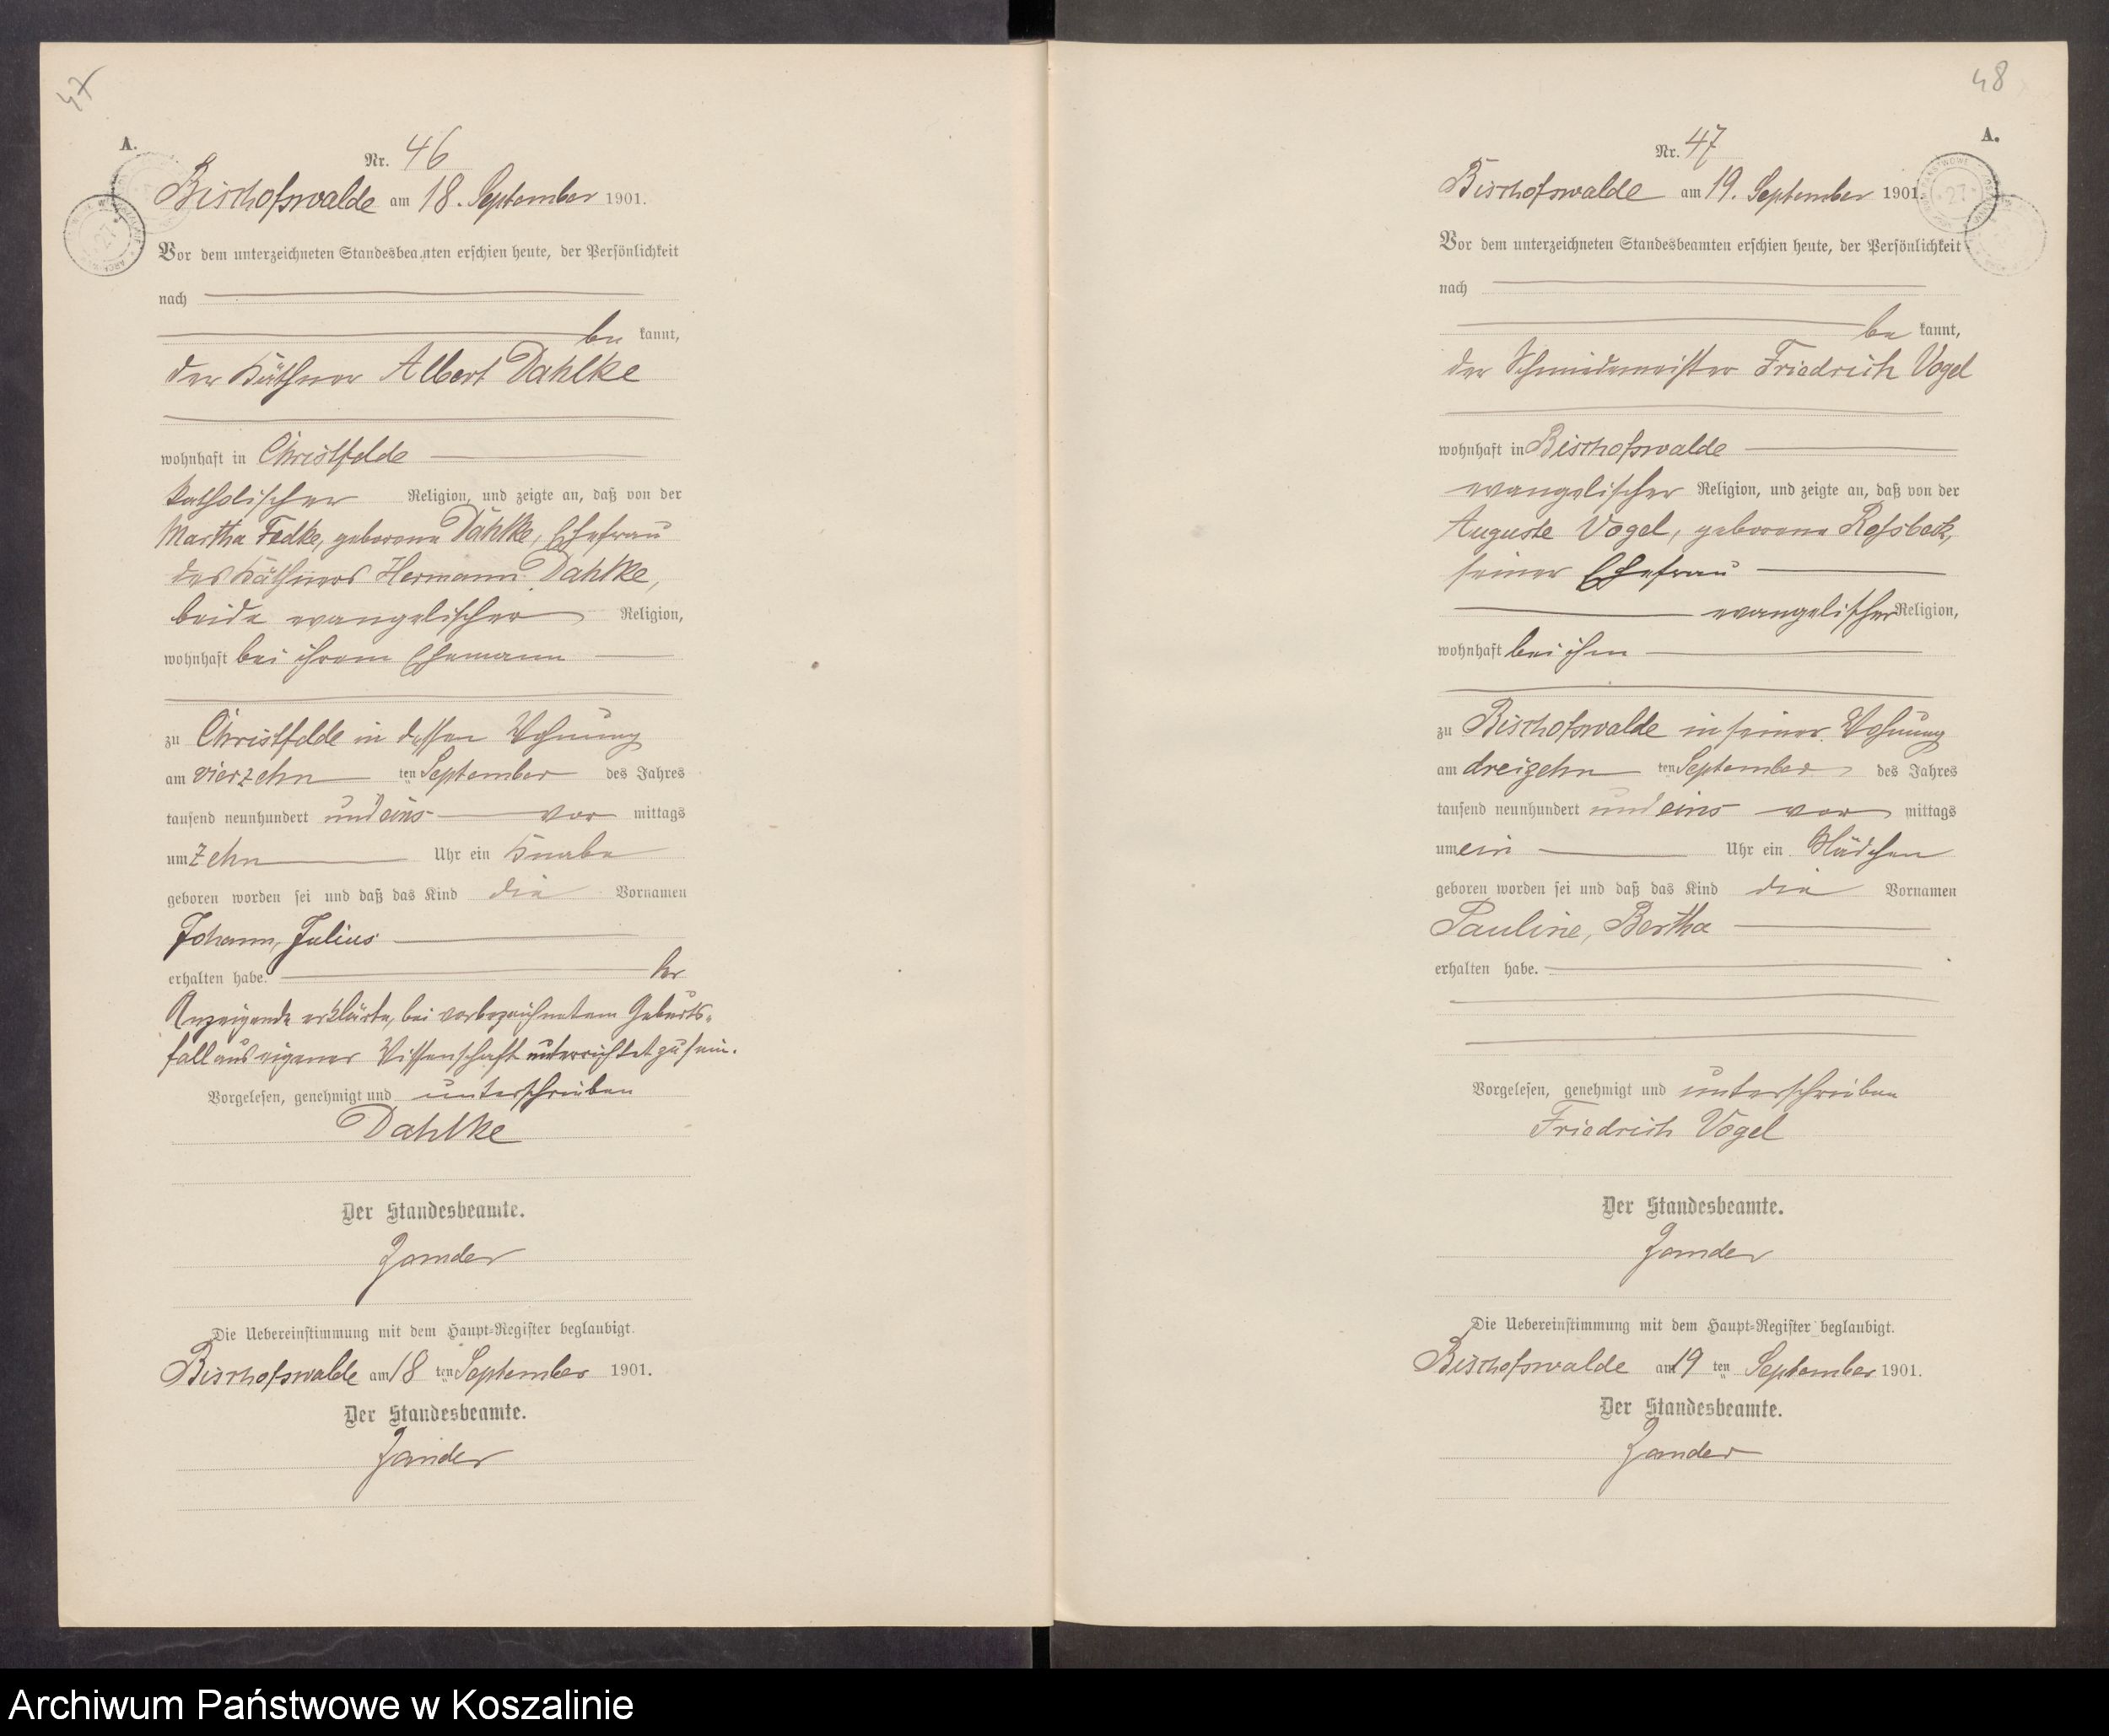 47
A.
Nr. 46
Bischofswalde am 18. September 1901.
Vor dem unterzeichneten Standesbeamten erschien heute, der Persönlichkeit
nach
be kannt,
der Käthner Albert Dahlke
wohnhaft in Christfelde
katholischer Religion, und zeigte an, daß von der
Martha Fedke, geborene Dahlke, Ehefrau
des Käthners Hermann Dahlke,
beide evangelischer Religion,
wohnhaft bei ihrem Ehemann
zu Christfelde in dessen Wohnung
am vierzehn ten September des Jahres
tausend neunhundert und eins vor mittags
um zehn Uhr ein Knabe
geboren worden sei und daß das Kind die Vornamen
Johann, Julius
erhalten habe. Der
Anzeigende erklärte, bei vorbezeichnetem Geburts-
fall aus eigener Wissenschaft unterrichtet zu sein.
Vorgelesen, genehmigt und unterschrieben
Dahlke
Der Standesbeamte.
Zander
Die Uebereinstimmung mit dem Haupt-Register beglaubigt.
Bischofswalde am 18 ten September 1901.
Der Standesbeamte.
Zander
48
A.
Nr. 47
Bischofswalde am 19. September 1901.
Vor dem unterzeichneten Standesbeamten erschien heute, der Persönlichkeit
nach
be kannt,
der Schmiedemeister Friedrich Vogel
wohnhaft in Bischofswalde
evangelischer Religion, und zeigte an, daß von der
Auguste Vogel, geborene Rossbeck,
seiner Ehefrau
evangelischer Religion,
wohnhaft bei ihm
zu Bischofswalde in seiner Wohnung
am dreizehn ten September des Jahres
tausend neunhundert und eins vor mittags
um ein Uhr ein Mädchen
geboren worden sei und daß das Kind die Vornamen
Pauline, Bertha
erhalten habe.
Vorgelesen, genehmigt und unterschrieben
Friedrich Vogel
Der Standesbeamte.
Zander
Die Uebereinstimmung mit dem Haupt-Register beglaubigt.
Bischofswalde am 19 ten September 1901.
Der Standesbeamte.
Zander
Archiwum Państwowe w Koszalinie